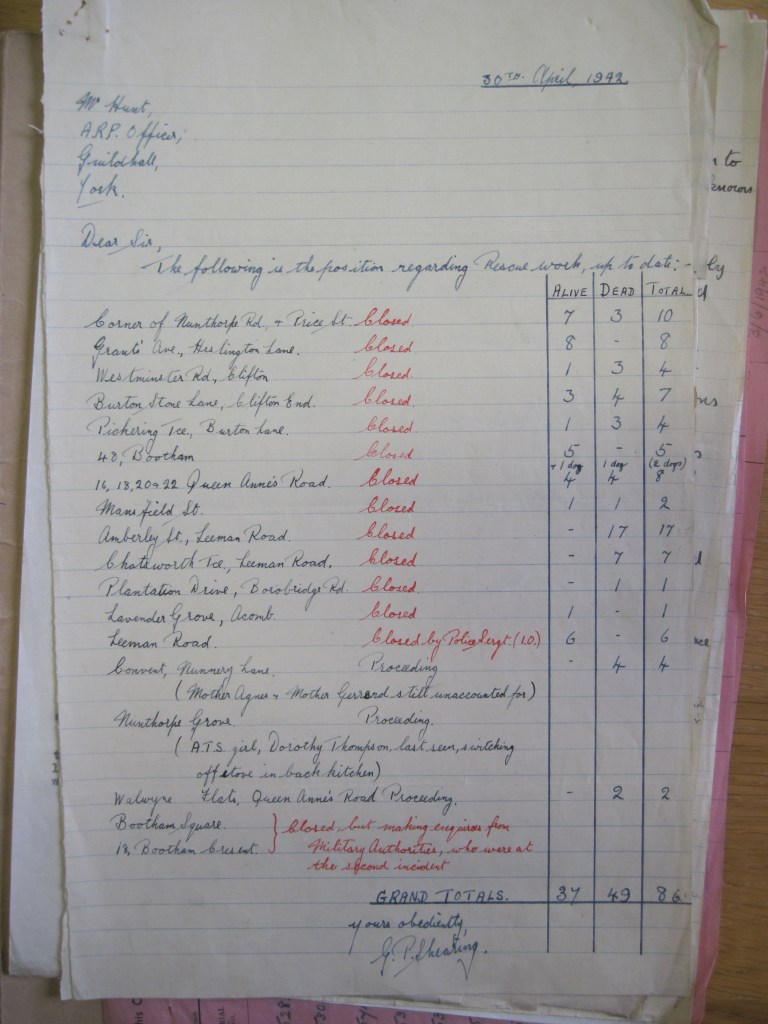 30TH. April, 1942
Mr Hunt,
A.R.P. Officer,
Guildhall,
York.
Dear Sir,
The following is the position regarding Rescue work, up to date: -
ALIVE DEAD TOTAL
Corner of Nunthorpe Rd. + Price St. Closed 7 3 10
Grants Ave., Heslington Lane. Closed 8 - 8
Westminster Rd, Clifton Closed. 1 3 4
Burton Stone Lane, Clifton End. Closed. 3 4 7
Pickering Tce, Burton Lane. Closed. 1 3 4
48, Bootham Closed 5 - 5
+ 1 dog 1 dog (2 dogs)
16, 18, 20 + 22 Queen Anne's Road. Closed 4 4 8
Mansfield St. Closed 1 1 2
Amberley St., Leeman Road. Closed - 17 17
Chatsworth Tce, Leeman Road. Closed - 7 7
Plantation Drive, Borobridge Rd. Closed. - 1 1
Lavender Grove, Acomb. Closed 1 - 1
Leeman Road. Closed by Police Sergt. (I.O.) 6 - 6
Convent, Nunnery Lane. Proceeding - 4 4
(Mother Agnes + Mother Gerrard still unaccounted for)
Nunthorpe Grove. Proceeding.
(A.T.S. girl, Dorothy Thompson, last seen, switching
off stove in back kitchen)
Walwyne Flats, Queen Anne's Road Proceeding. - 2 2
Bootham Square. } Closed, but making enquires from
18, Bootham Cresent. Military Authorities, who were at
the second incident
GRAND TOTALS. 37 49 86
Yours obediently,
G. P. Shearing.
to
knows
by